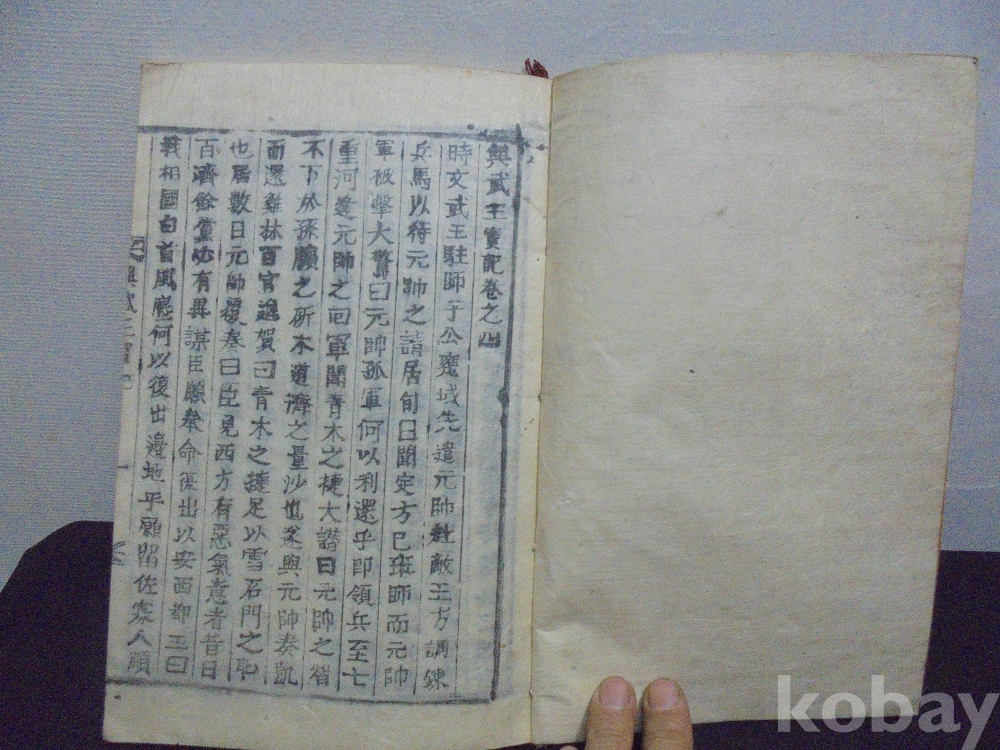 興武王實記卷之四
時文武王駐師于公瓮城先遣元帥赴敵王方調鍊
兵馬以待元帥之請居旬日聞定方已班師而元帥
軍被擊大驚曰元帥孤軍何以利還乎卽領兵至七
重河迎元帥之回軍聞靑木之捷大讃曰元帥之智
不下於孫臏之斫木道濟之量沙也遂與元帥奏凱
而還雞林百官進賀曰靑木之捷足以雪石門之恥
也居數日元帥復奏曰臣見西方有惡氣意者昔日
百濟餘黨必有異謀臣願奉命復出以安西都王曰
戰相國白首風塵何以復出邊地乎願留佐寡人順
興武王實記
kobay